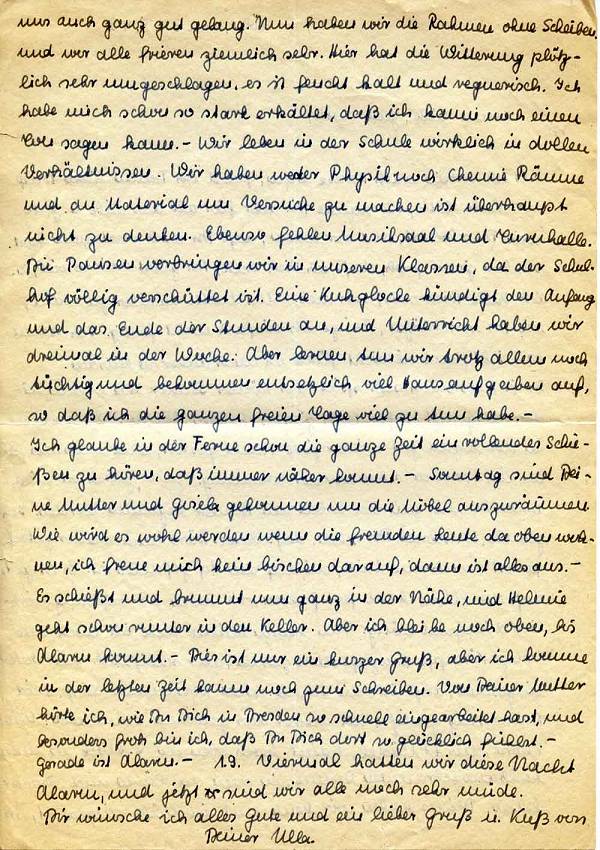 uns auch ganz gut gelang. Nun haben wir die Rahmen ohne Scheiben.
und wir alle frieren ziemlich sehr. Hier hat die Witterung plötz-
lich sehr umgeschlagen, es ist feucht kalt und regnerisch. Ich
habe mich schon so stark erkältet, daß ich kaum noch einen
Ton sagen kann. - Wir leben in der Schule wirklich in dollen
Verhältnissen. Wir haben weder Physik noch Chemie Räume
und an Material um Versuche zu machen ist überhaupt
nicht zu denken. Ebenso fehlen Musiksaal und Turnhalle.
Die Pausen verbringen wir in unseren Klassen, da der Schul-
hof völlig verschüttet ist. Eine Kuhglocke kündigt den Anfang
und das Ende der Stunden an, und Unterricht haben wir
dreimal in der Woche. Aber lernen tun wir trotz allem noch
tüchtig und bekommen entsetzlich viel Hausaufgaben auf,
so daß ich die ganzen freien Tage viel zu tun habe. -
Ich glaube in der Ferne schon die ganze Zeit ein rollendes Schie-
ßen zu hören, daß immer näher kommt. - Sonntag sind Dei-
ne Mutter und Gisela gekommen um die Möbel auszuräumen.
Wie wird es wohl werden wenn die fremden Leute da oben woh-
nen, ich freue mich kein bischen darauf, dann ist alles aus. -
Es schießt und brummt nun ganz in der Nähe, und Helmie
geht schon runter in den Keller. Aber ich bleibe noch oben, bis
Alarm kommt. - Dies ist nur ein kurzer Gruß, aber ich komme
in der letzten Zeit kaum noch zum Schreiben. Von Deiner Mutter
hörte ich, wie Du Dich in Dresden so schnell eingearbeitet hast, und
besonders froh bin ich, daß Du Dich dort so glücklich fühlst. -
Gerade ist Alarm. - 19. Viermal hatten wir diese Nacht
Alarm, und jetzt sind wir alle noch sehr müde.
Dir wünsche ich alles Gute und ein lieber Gruß u. Kuß von
Deiner Ulla.